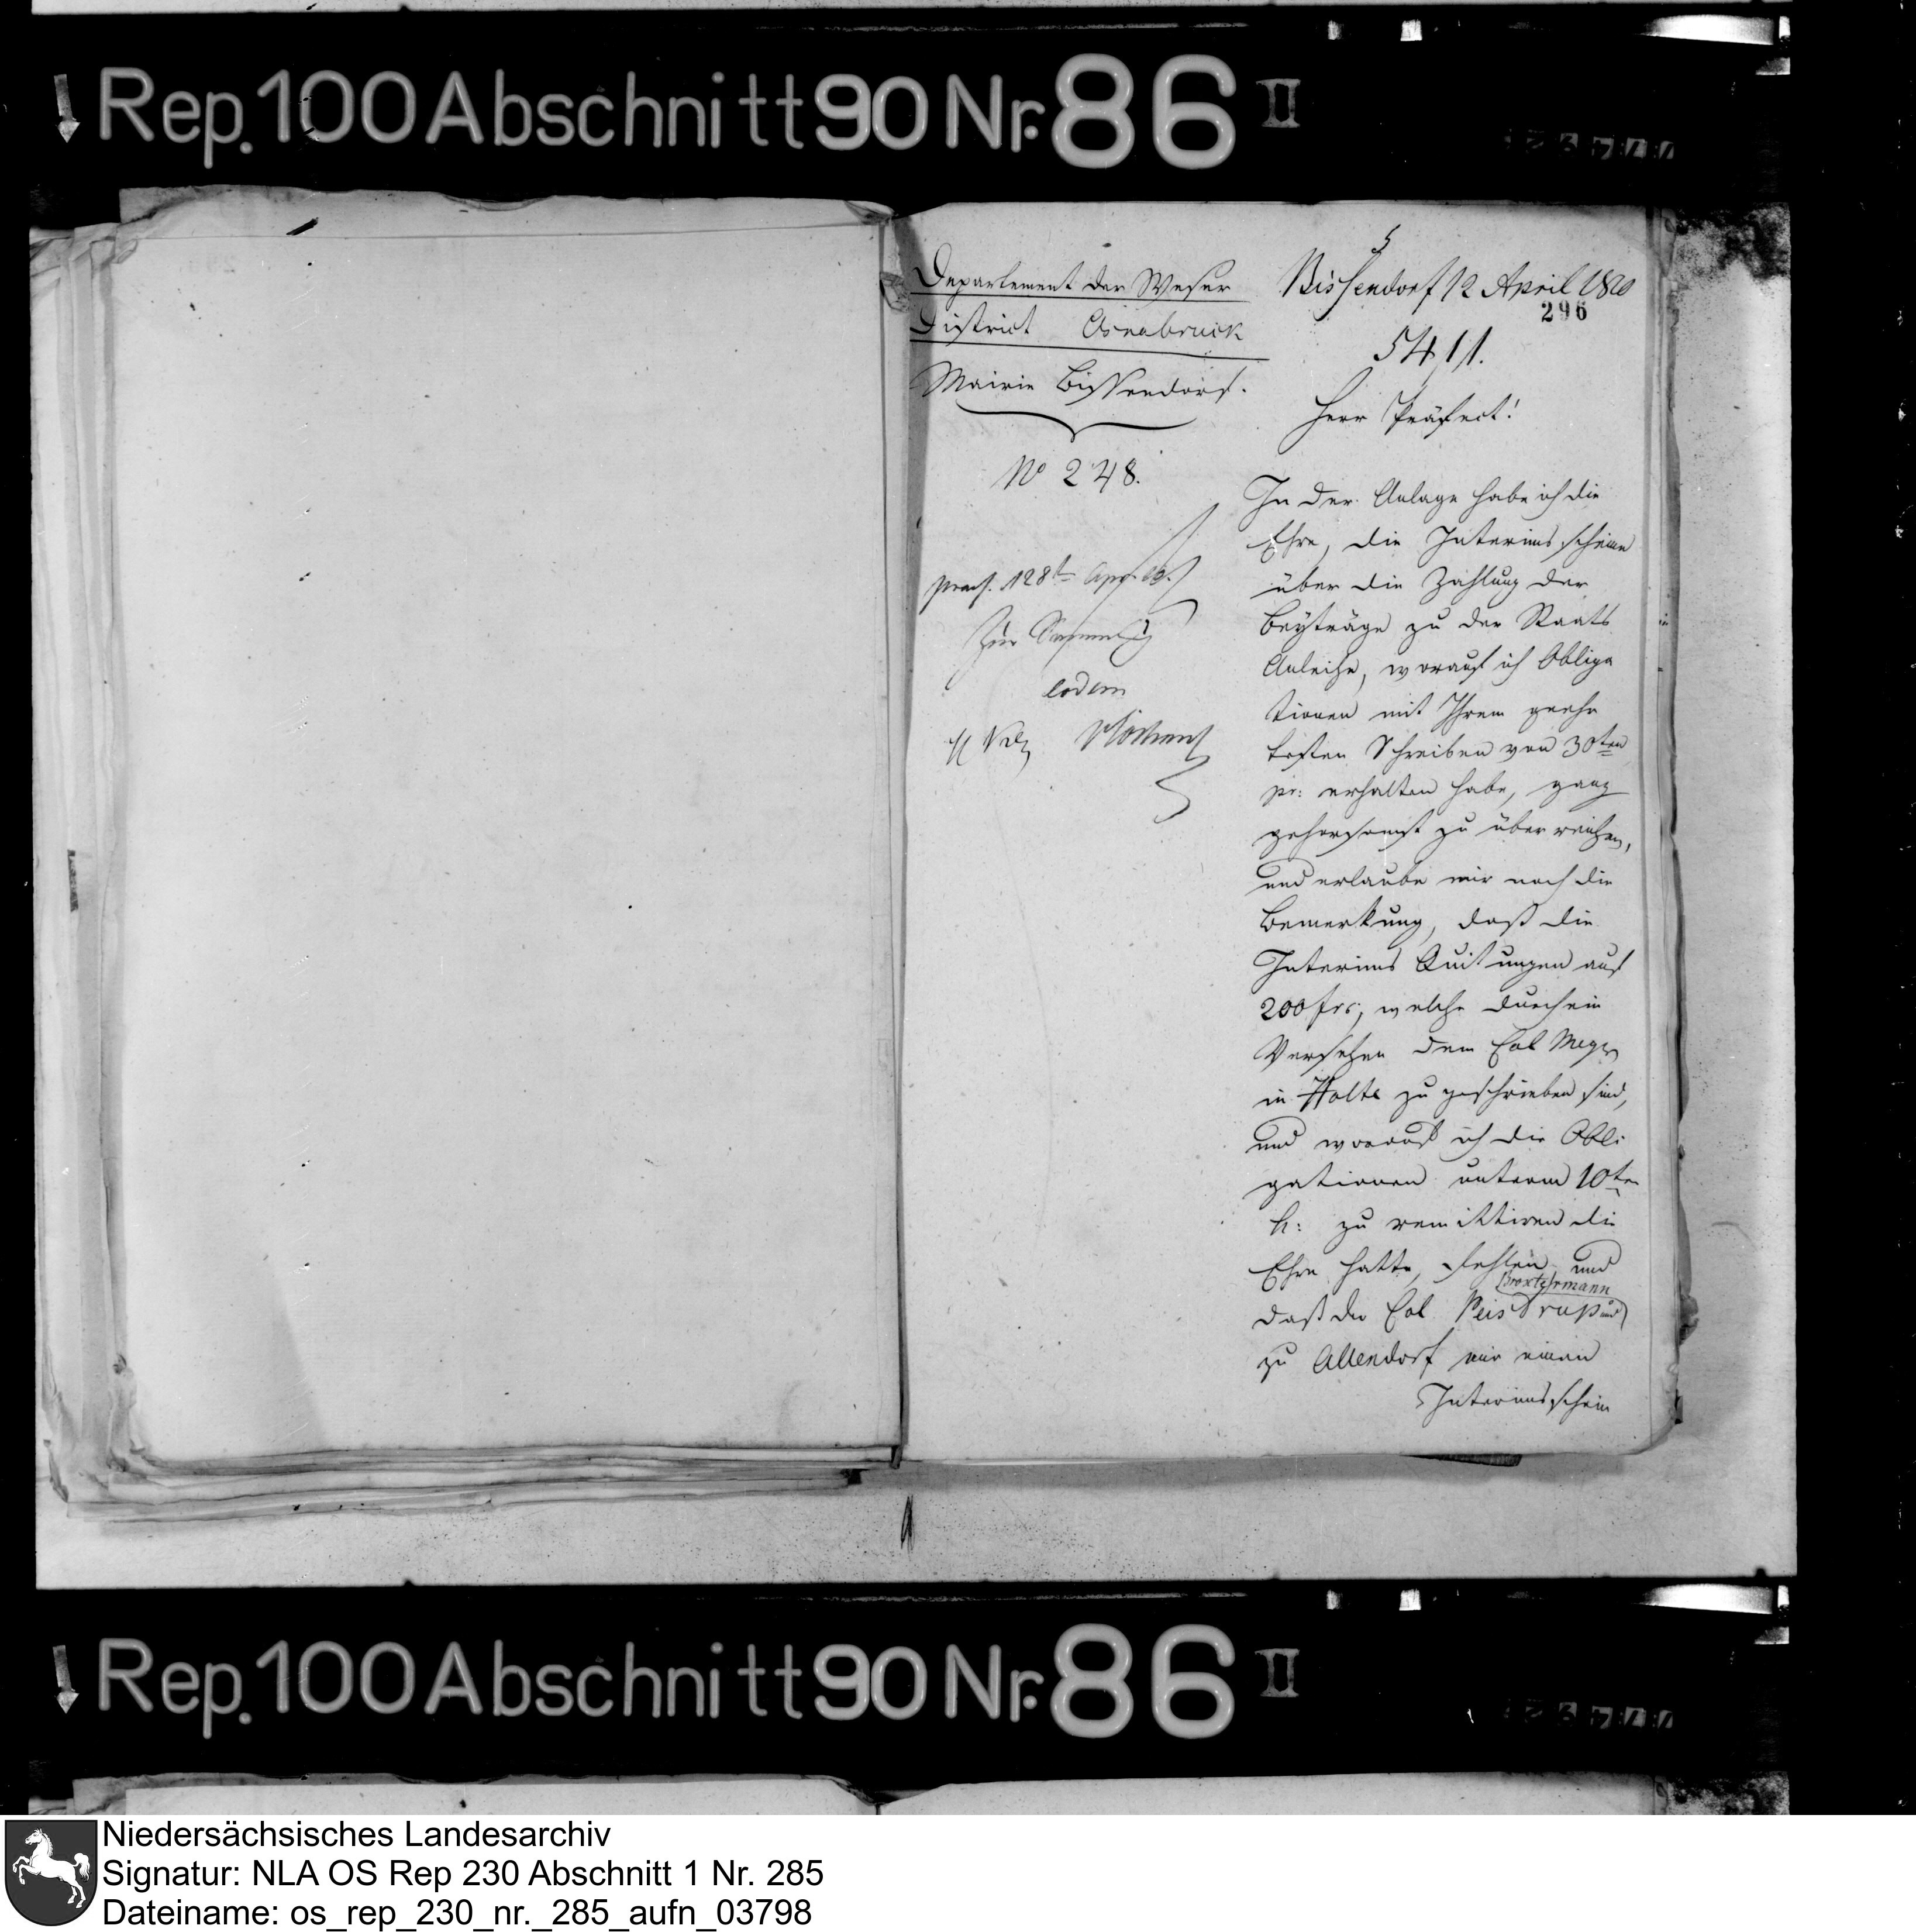 Rep. 100 Abschnitt 90 Nr. 86 II
Departement der Weser
District Osnabruck
Mairie Bissendorf.
No 248.
Zur Sammlg
eodem
Bissendorf 12 April 1810
296
5411.
Herr Präfect!
In der Anlage habe ich die
Ehre, die Interims scheine
über die Zahlung der
Beyträge zu der Staats
Anleihe, worauf ich Obliga
tionen mit Ihrem geehr
testen Schreiben von 30ten
pr: erhalten habe, ganz
gehorsamst zu über reichen,
und erlaube mir noch die
Bemerkung, daß die
Interims Quitungen auf
200 frs, welche durch ein
Versehen dem Col Meyer
in Holte zu geschrieben sind,
und worauf ich die Obli
gationen unterm 10ten
h: zu remittiren die
Ehre hatte, fehlen und
Broxtermann
daß der Col Peistrup und
zu Allendorf mir einen
Interimsschein
Rep. 100 Abschnitt 90 Nr. 86 II
Niedersächsisches Landesarchiv
Signatur: NLA OS Rep 230 Abschnitt 1 Nr. 285
Dateiname: os_rep_230_nr._285_aufn_03798